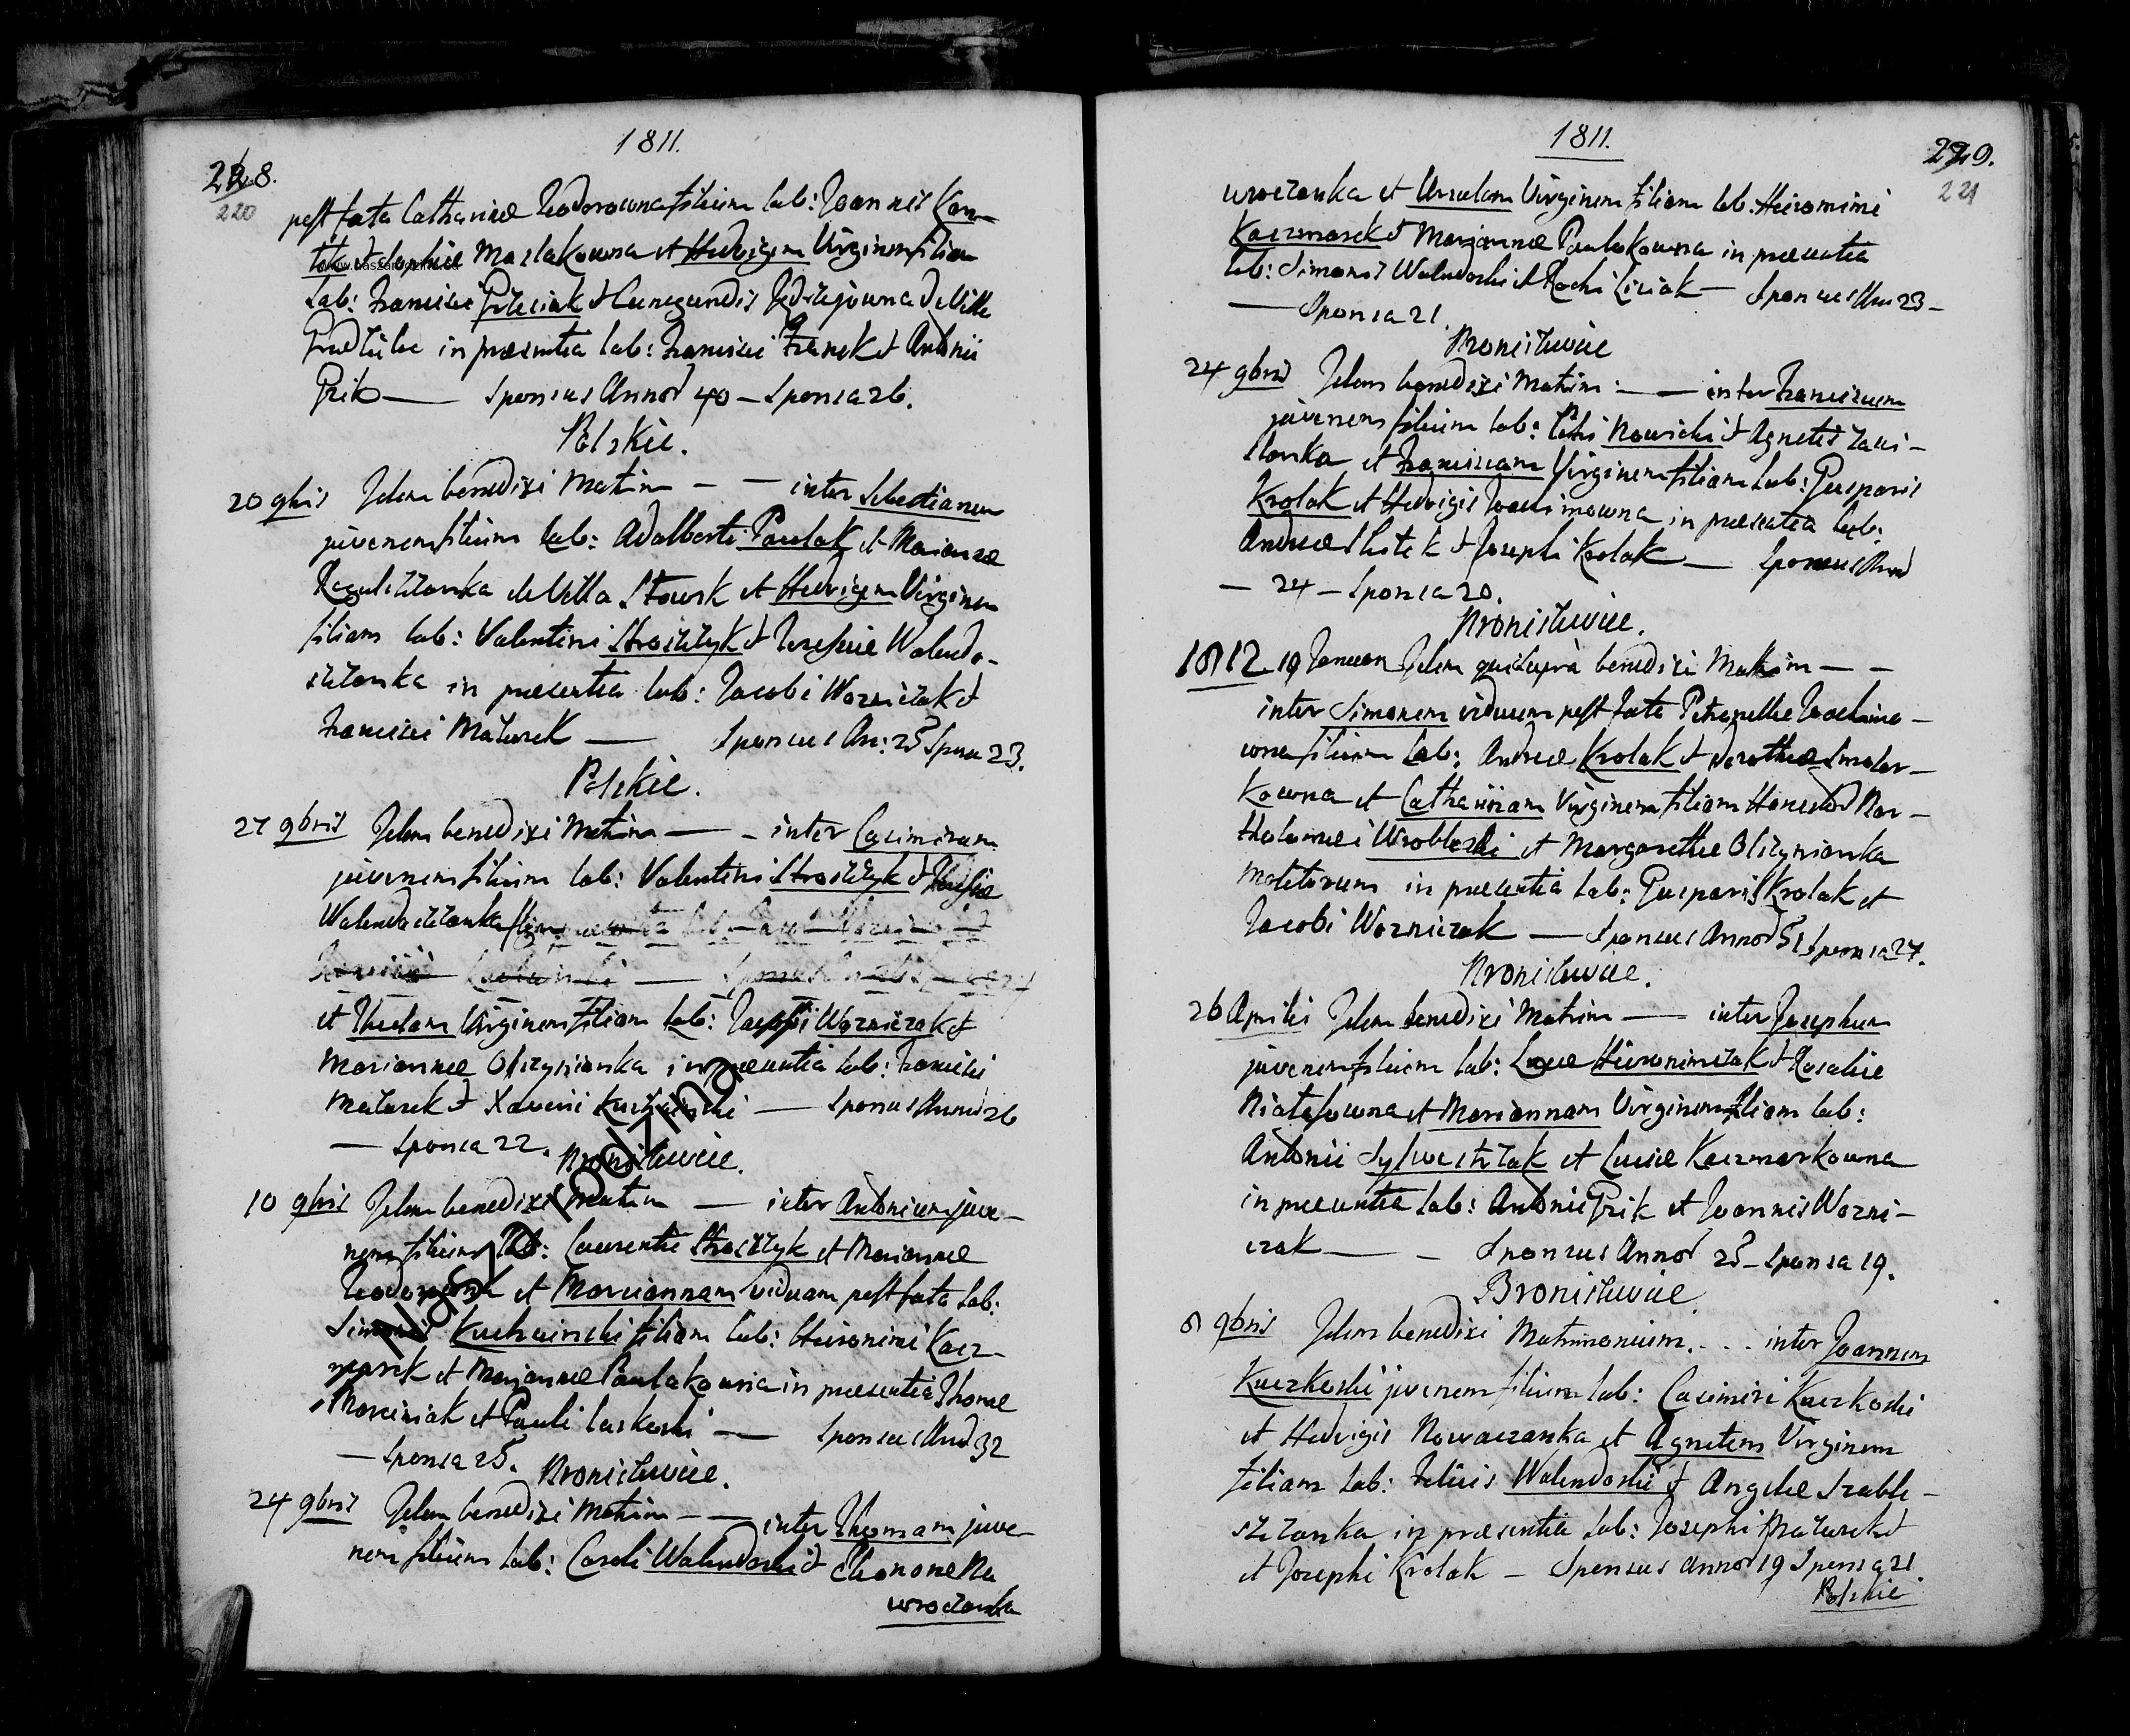 1811.
228.
220
post fata Catharinæ Teodorowna filium lab: Joannis Kon-
tek et Sophiæ Maslakowna et Hedvigem Virginem filiam
lab: Francisci Grzeciak et Cunegundis Jędrzejowna de Villa
in præsentia lab: Francisci Franek et Antonii
Grik — Sponsus Annor 40 – Sponsa 26.
Polskie.
20 9bris Idem benedixi Matrim – – inter Sebastianum
juvenem filium lab: Adalberti Pawlak et Mariannæ
de Villa Stawsk et Hedvigem Virginem
filiam lab: Valentini Stroszczyk et Josephæ Walendo-
szczonka in præsentia lab: Jacobi Wozniczak et
Francisci Maturek — Sponsus An: 25 Sponsa 23.
Polskie.
27 9bris Idem benedixi Matrim — – inter Casimirum
juvenem filium lab: Valentini Stroszczyk et Josephæ
Walendoszczonka
et Theclam Virginem filiam lab: Josephi Wozniczak et
Mariannæ Olszynionka in præsentia lab: Francisci
Maturek et Xaverii — Sponsus Annor 26
— Sponsa 22.
Bronisławice.
10 9bris Idem benedixi Matrim — inter Antonium juve-
nem filium lab: Laurentii Stroszczyk et Mariannæ
et Mariannam viduam post fata lab:
Simonis Kucharscki filiam lab: Hieronimi Kacz-
marek et Mariannæ Paulakowna in præsentia Thomæ
Marciniak et Pauli Laskoski — Sponsus Annor 32
— Sponsa 25.
Bronisławice.
24 9bris Idem benedixi Matrim – — inter Thomam juve-
nem filium lab: Caroli Walendoski et Eleonoræ Na
wroczonka
www.naszarodzina.eu
Nasza Rodzina
1811.
229.
221
wroczonka et Ursulam Virginem filiam lab. Hieronimi
Kaczmarek et Mariannæ Paulakowna in præsentia
lab: Simonis Walendoski et Rochi Liziak — Sponsus Ann 23 –
— Sponsa 21.
Bronisławice
24 9bris Idem benedixi Matrim: – — inter Franciscum
juvenem filium lab: Petri Nowicki et Agnetis Zawi-
slonka et Franciscam Virginem filiam lab: Gasparis
Krolak et Hedvigis Joachimowna in præsentia lab:
Andreæ Slotek et Josephi Krolak — Sponsus Annor
– 24 – Sponsa 20.
Bronisławice.
1812. 19 Januar Idem qui supra benedixi Matrim – –
inter Simonem viduum post fata Petronellæ Joachimo-
wna filium lab: Andreæ Krolak et Dorotheæ Smolar-
kowna et Catharinam Virginem filiam Honestor Bar-
tholomæi Wrobleski et Margarethæ Olszynionka
Molitorum in præsentia lab: Gasparis Krolak et
Jacobi Wozniczak — Sponsus Annor 51 Sponsa 27.
Bronisławice.
26 Aprilis Idem benedixi Matrim — inter Josephum
juvenem filium lab: Lucæ Hieronimczak et Rosaliæ
Białasowna et Mariannam Virginem filiam lab:
Antonii Sylwestrzak et Luciæ Kaczmarkowna
in præsentia lab: Antonii Grik et Joannis Wozni-
czak — – Sponsus Annor 25 – Sponsa 19.
Bronisławice.
8 9bris Idem benedixi Matrimonium. . . . inter Joannem
Kaczkoski juvenem filium lab: Casimiri Kaczkoski
et Hedvigis Nowaczonka et Agnetem Virginem
filiam lab: Felicis Walendoski et Angelæ Szable-
szczonka in præsentia lab: Josephi Maturek et
et Josephi Krolak – Sponsus Annor 19 Sponsa 21.
Polskie